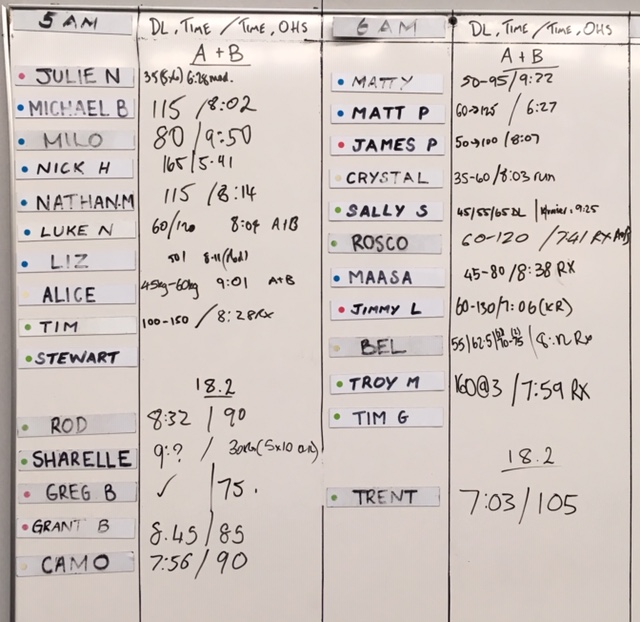 5 AM DL, TIME / TIME, OHS
A + B
JULIE N 35(5x6) 6:28 mod.
MICHAEL B 115 / 8:02
MILO 80 / 9:50
NICK H 165 / 5.41
NATHAN.M 115 / 8:14
LUKE N 60/120 8:04 A1B
LIZ 50 8.11 (Mod)
ALICE 45kg-60kg 9:01 A+B
TIM 100-150 / 8:28 Rx
STEWART
18.2
ROD 8:32 / 90
SHARELLE 9:? / 30kg (5x10
GREG B ✓ / 75.
GRANT B 8.45 / 85
CAMO 7:56 / 90
6 AM DL, TIME / TIME, OHS
A + B
MATTY 50-95 / 9:22
MATT P 60→125 / 6:27
JAMES P 50→100 / 8:07
CRYSTAL 35-60 / 8:03 run
SALLY S 45/55/65 DL | 9:25
ROSCO 60-120 / 741 RX
MAASA 45-80 / 8:38 RX
JIMMY L 60-130 / 7:06 (KR)
BEL 55/62.5/ 70-75 / Rx
TROY M 160@3 / 7:59 RX
TIM G
18.2
TRENT 7:03 / 105